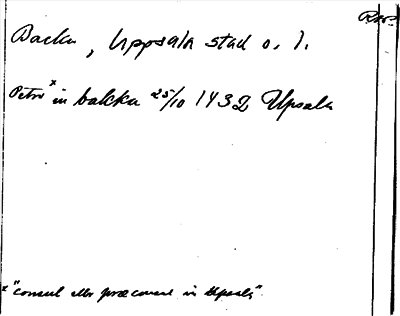 Backa, Uppsala stad o. l.
Petrus x in bakka 25/10 1432 Upsala
x "consul eller præconsul in Upsala"